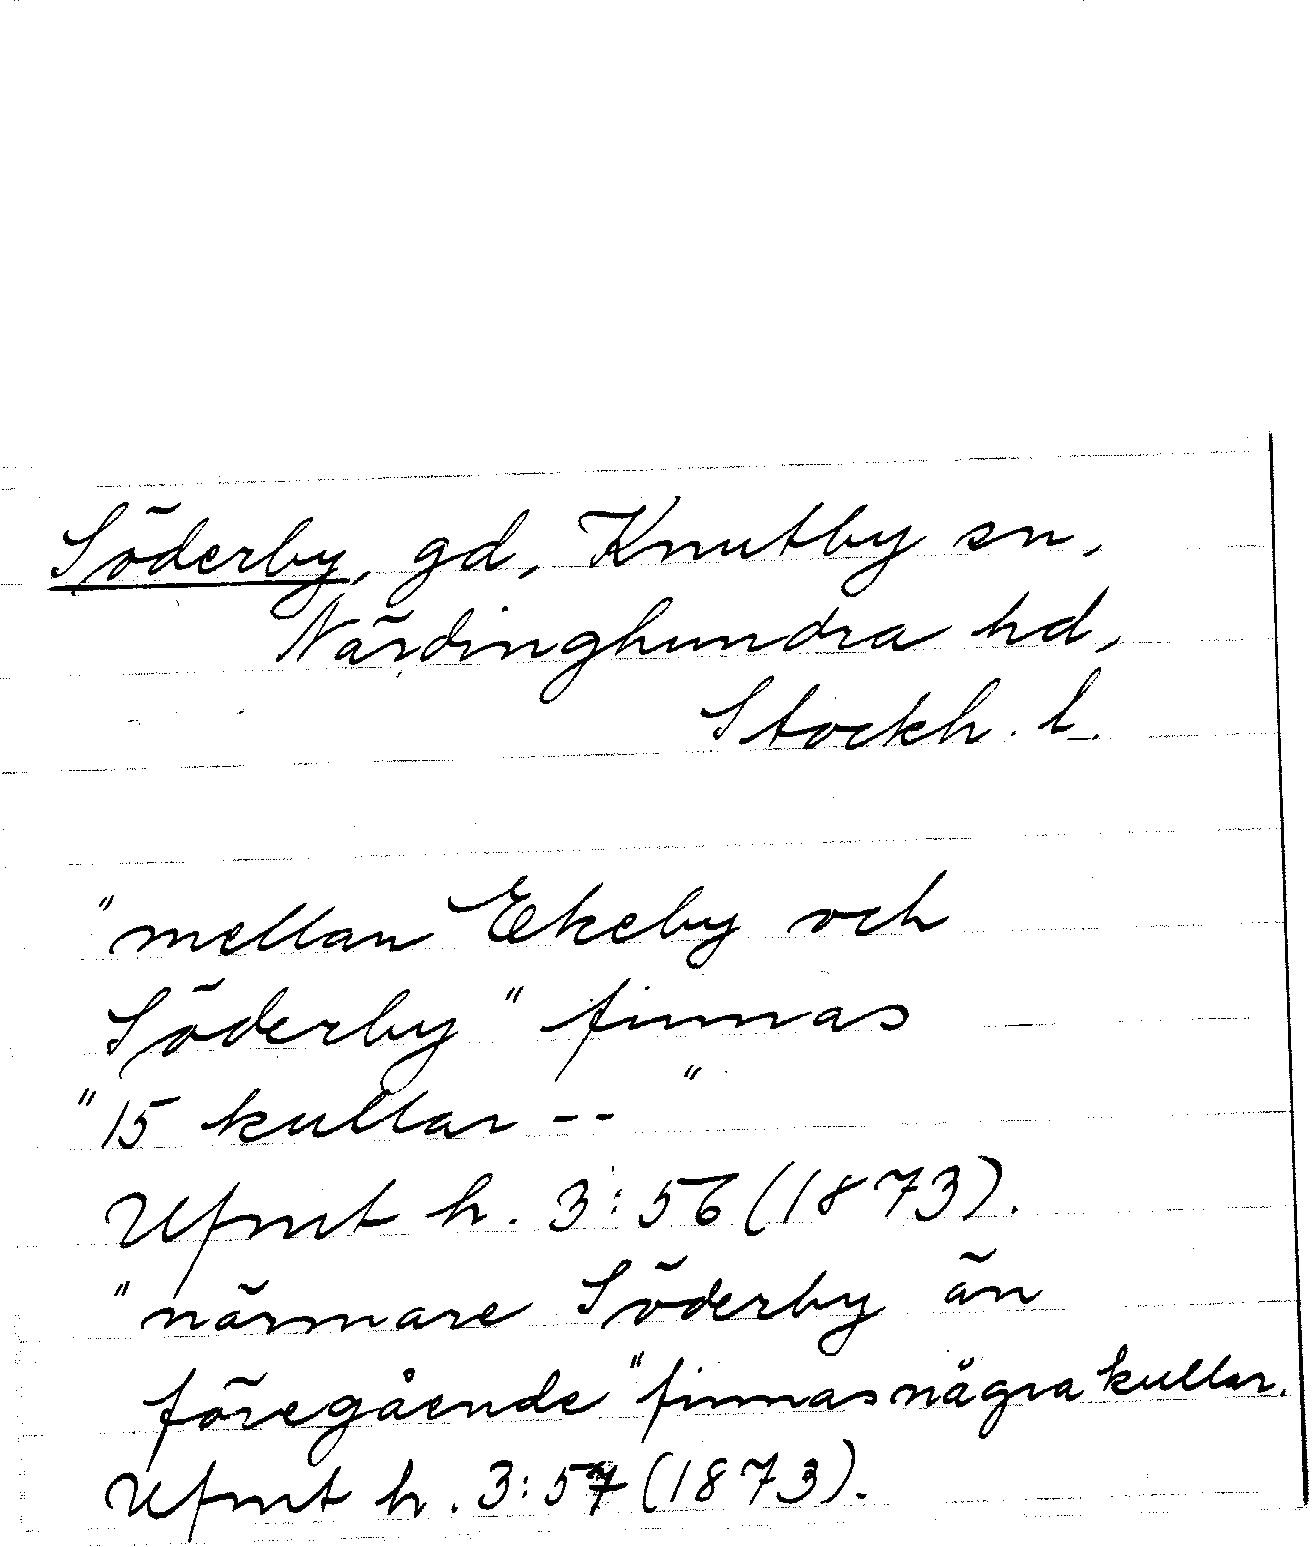 Söderby, gd, Knutby sn,
Närdinghundra hd,
Stockh. l.
"mellan Ekeby och
Söderby" finnas
"15 kullar -- "
Ufmt h. 3:56 (1873).
"närmare Söderby än
föregående" finnas några kullar.
Ufmt h. 3:57 (1873).